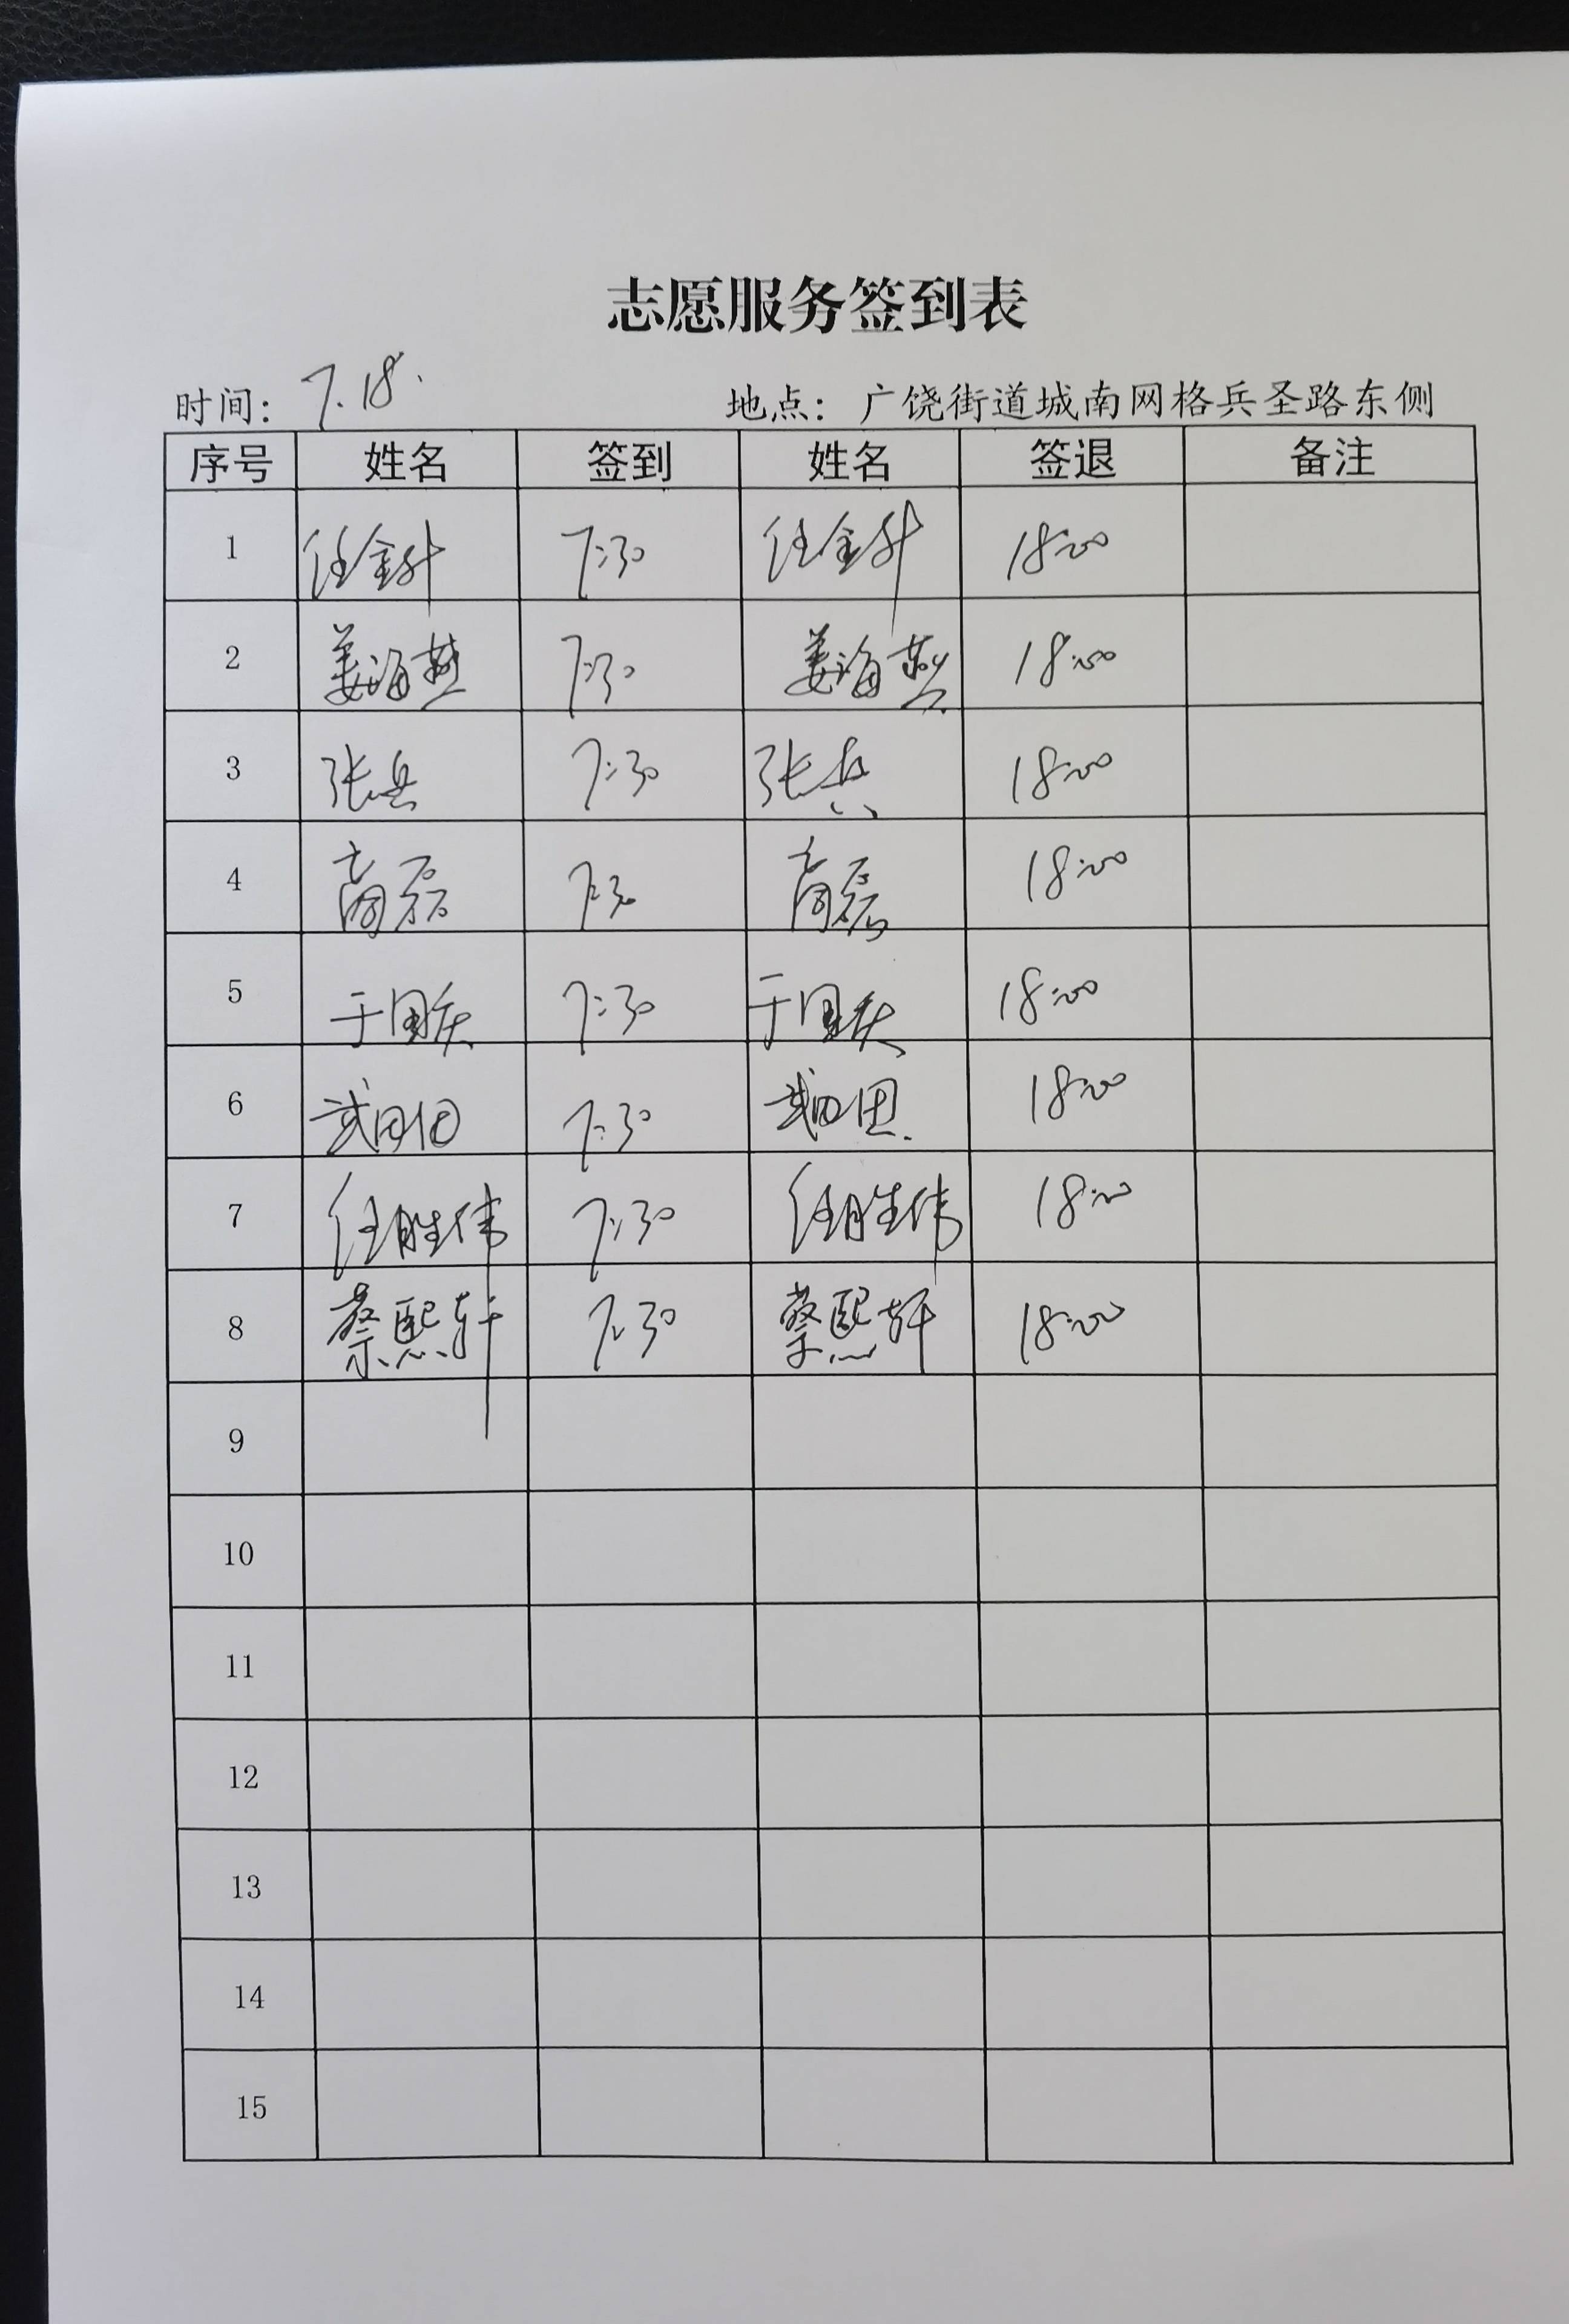 志愿服务签到表
时间: 7.18. 地点: 广饶街道城南网格兵圣路东侧
序号 姓名 签到 姓名 签退 备注
1 任金升 7:30 任金升 18:00
2 姜海燕 7:30 姜海燕 18:00
3 张兵 7:30 张兵 18:00
4 商磊 7:30 商磊 18:00
5 于国庆 7:30 于国庆 18:00
6 7:30 18:00
7 任胜伟 7:30 任胜伟 18:00
8 蔡熙轩 7:30 蔡熙轩 18:00
9
10
11
12
13
14
15